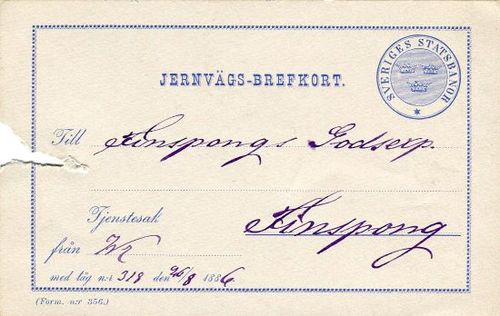 SVERIGES STATSBANOR
JERNVÄGS-BREFKORT.
Till Finspongs Godsexp.
Finspong
Tjenstesak
från
med tåg n:r 318 den 26/8 1886
(Form. n:r 356.)